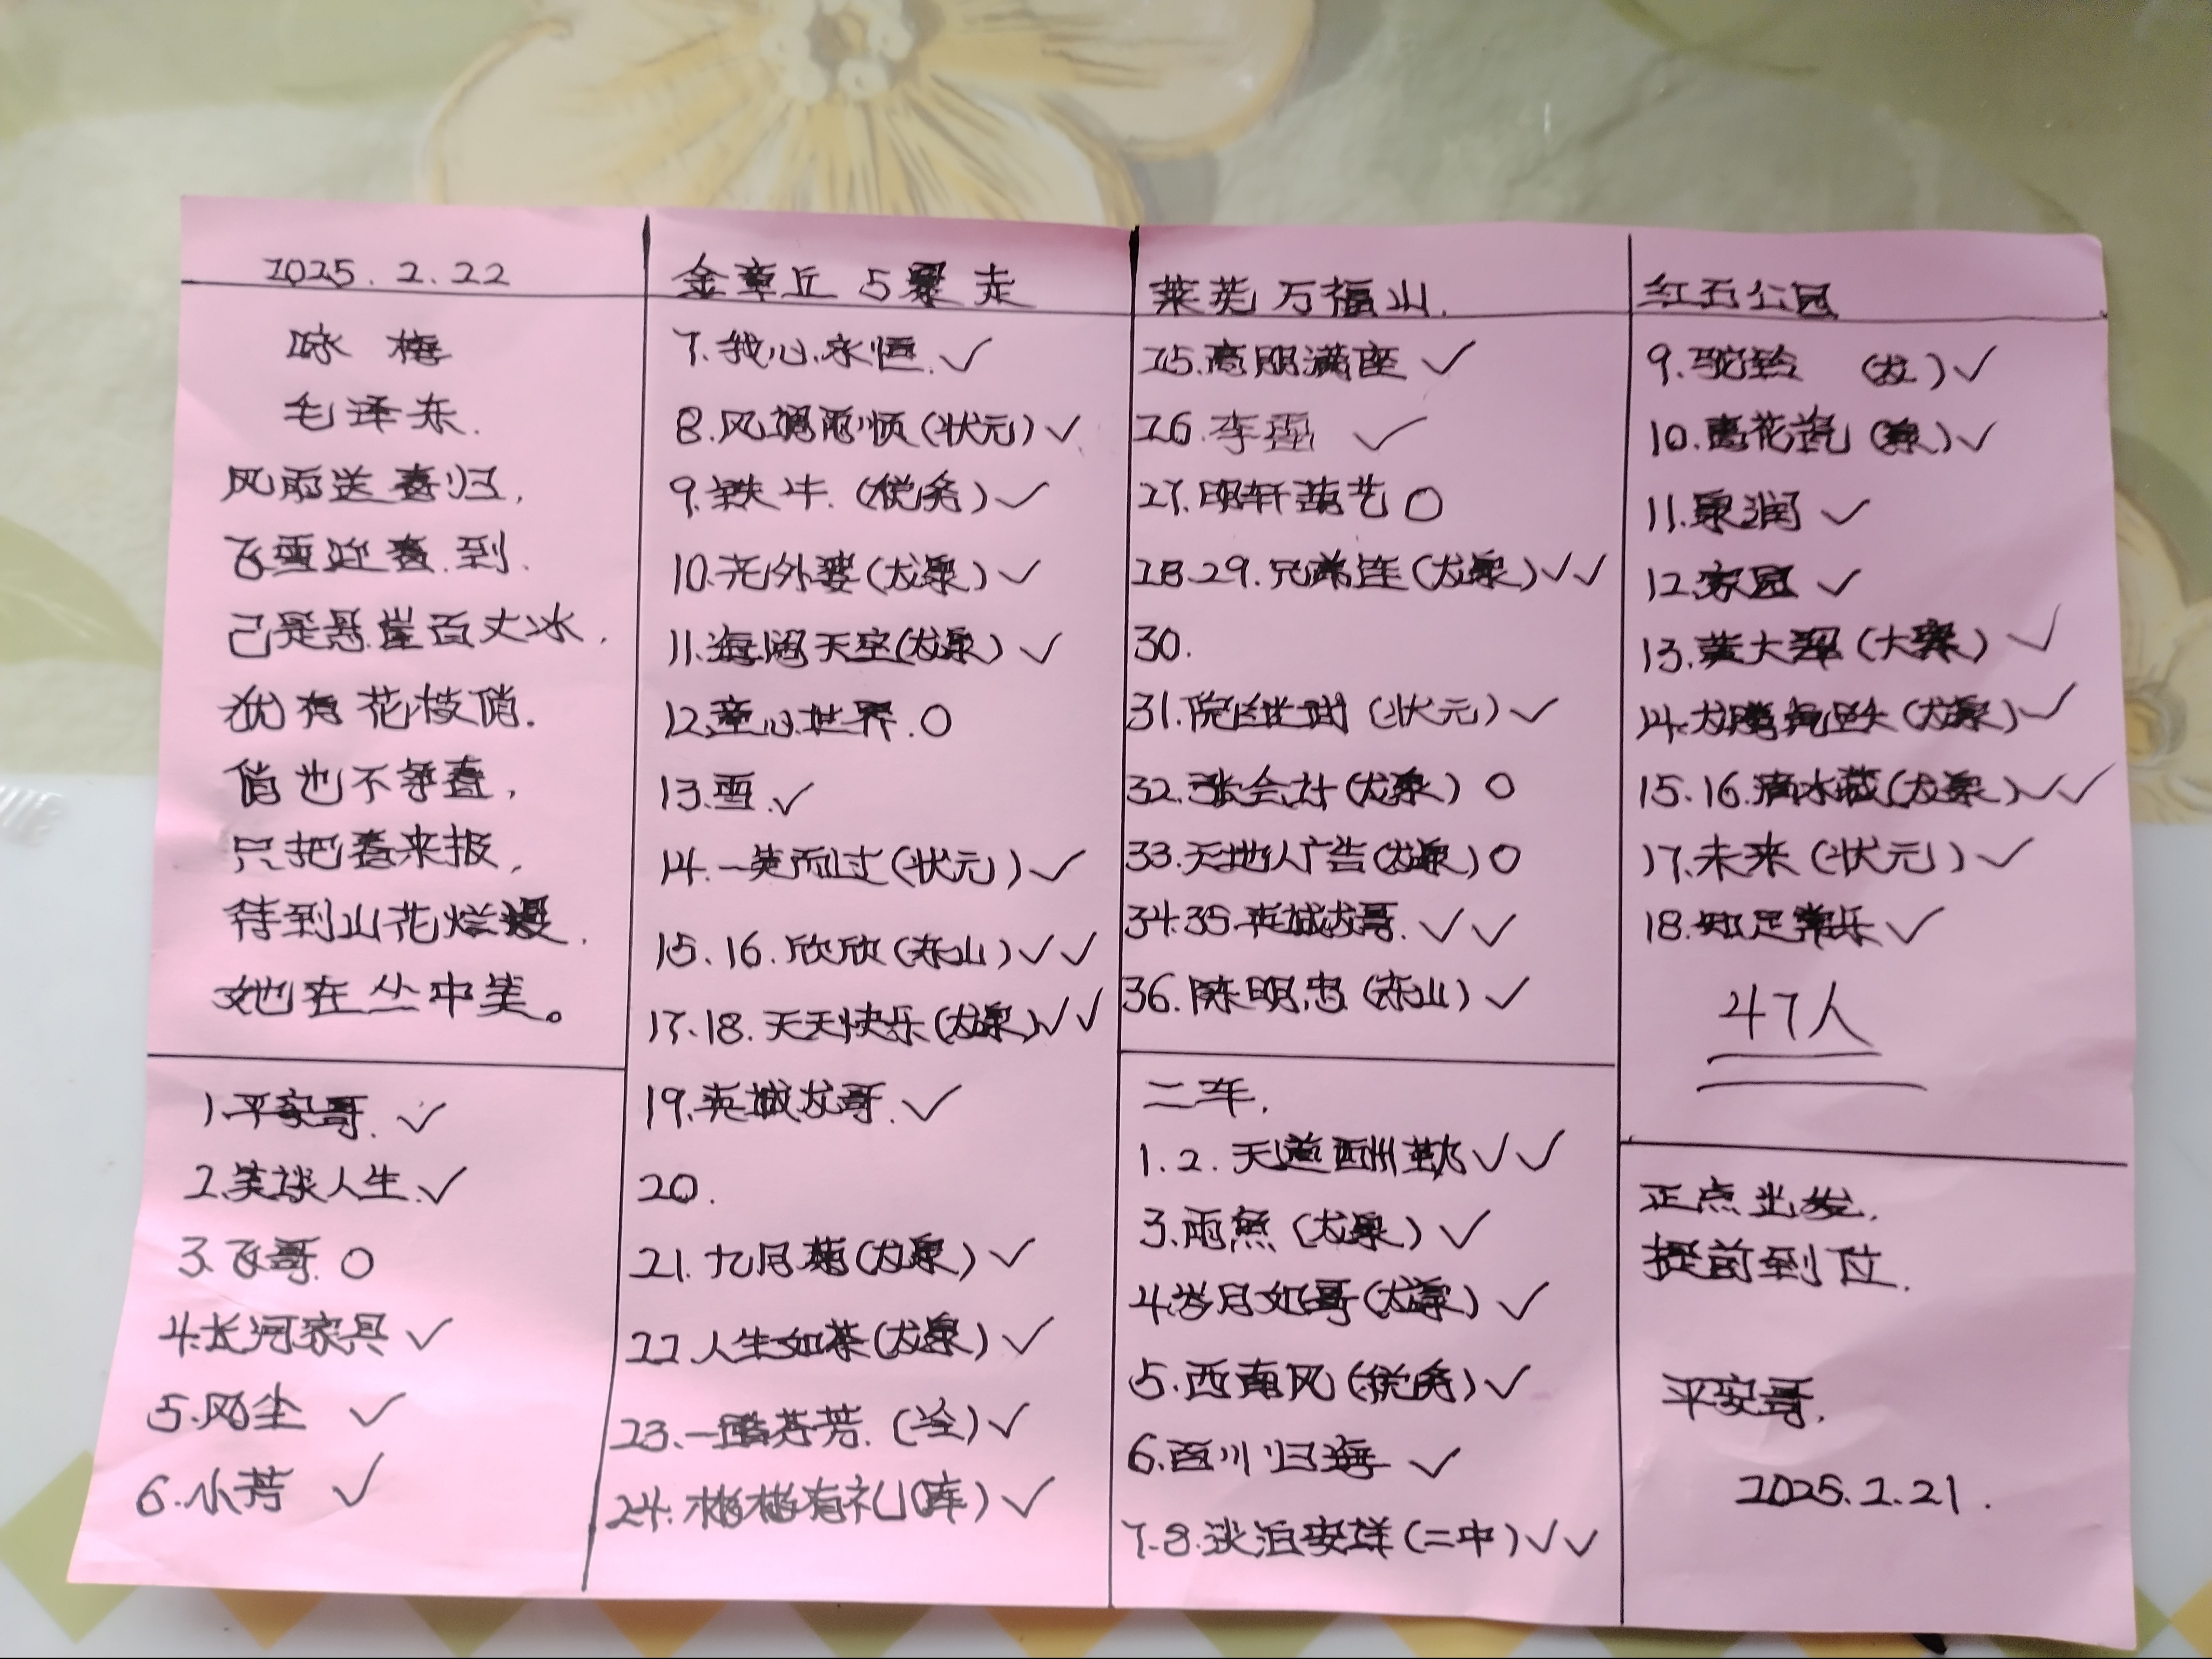 2025.2.22
咏梅
毛泽东.
风雨送春归,
飞雪迎春到.
己是悬崖百丈冰,
犹有花枝俏.
俏也不争春,
只把春来报,
待到山花烂漫.
她在丛中笑。
1.平安哥.✓
2.笑球人生.✓
3.飞哥.O
4.长河家具✓
5.风尘✓
6.小芳✓
金章丘 5暴走
7.我心永恒.✓
8.风调雨顺(状元)✓
9.铁牛.(税务)✓
10.光外婆(龙泉)✓
11.海阔天空(龙泉)✓
12.童心世界.O
13.雪.✓
14.一笑而过(状元)✓
15.16.欣欣(东山)✓✓
17.18.天天快乐(龙泉)✓✓
19.英城龙哥.✓
20.
21.九月菊(龙泉)✓
22.人生如茶(龙泉)✓
23.一路芬芳.(全)✓
24.彬彬有礼(库)✓
莱芜万福山.
25.高朋满座✓
26.李雪✓
27.明轩茜艺O
28.29.兄弟连(龙泉)✓✓
30.
31.(状元)✓
32.张会计(龙泉)O
33.天地人广告(龙泉)O
34.35.英城龙哥.✓✓
36.陈明忠(东山)✓
二车.
1.2.天道酬勤✓✓
3.雨燕(龙泉)✓
4.岁月如哥(龙泉)✓
5.西南风(税务)✓
6.百川归海✓
7.8.淡泊安祥(二中)✓✓
红石公园
9.驼铃(龙)✓
10.喜花荒(泉)✓
11.泉润✓
12.家园✓
13.黄大深(大寨)✓
14.龙腾(龙泉)✓
15.16.滴水藏(龙泉)✓✓
17.未来(状元)✓
18.知足常乐✓
47人
正点出发.
提前到位.
平安哥.
2025.2.21.